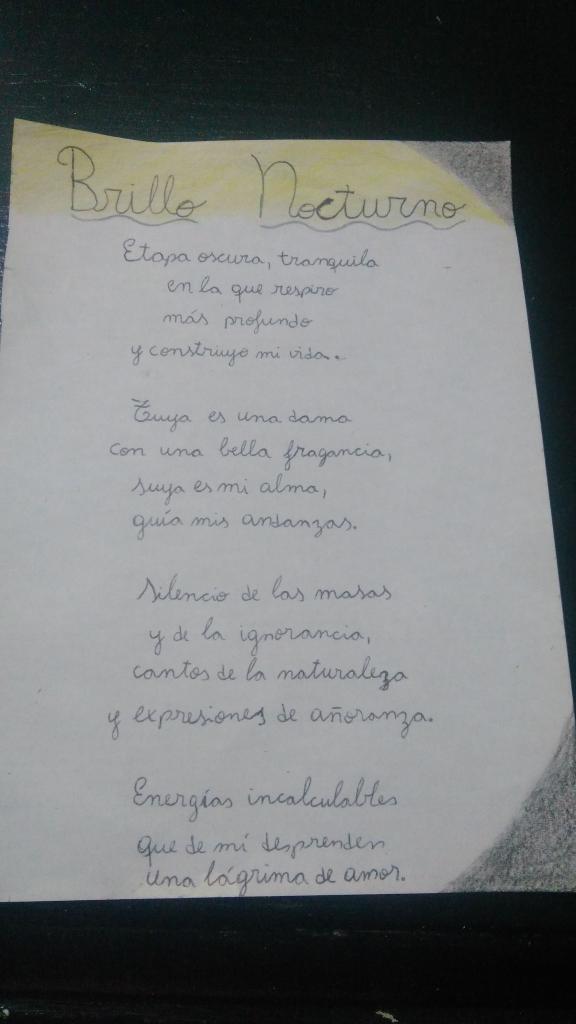 Brillo Nocturno
Etapa oscura, tranquila
en la que respiro
más profundo
y construyo mi vida.
Tuya es una dama
con una bella fragancia,
suya es mi alma,
guía mis andanzas.
Silencio de las masas
y de la ignorancia,
cantos de la naturaleza
y expresiones de añoranza.
Energías incalculables
que de mí desprenden
una lágrima de amor.